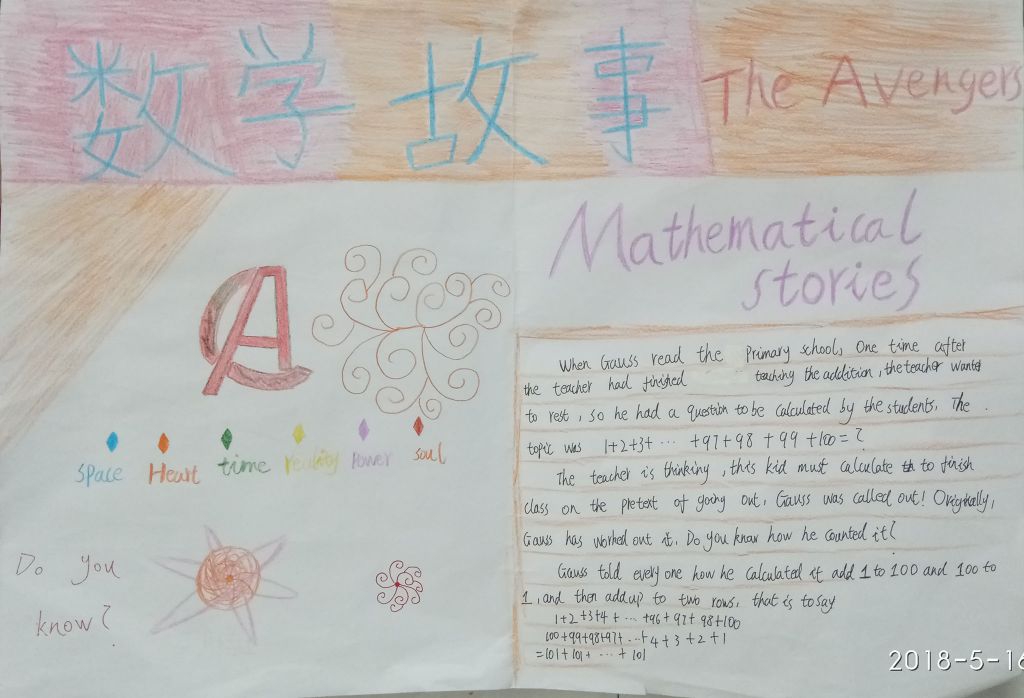 数学故事
The Avengers
Mathematical
stories
A
space Heart time reality Power soul
Do you
know?
When Gauss read the Primary school, One time after
the teacher had finished teaching the addition, the teacher wanted
to rest, so he had a question to be calculated by the students. The
topic was 1+2+3+ ··· +97+98+99+100=?
The teacher is thinking, this kid must calculate to finish
class on the pretext of going out, Gauss was called out! Originally,
Gauss has worked out it. Do you know how he counted it?
Gauss told every one how he calculated it add 1 to 100 and 100 to
1, and then add up to two rows, that is to say
1+2+3+4+ ··· +96+97+98+100
100+99+98+97+ ··· +4+3+2+1
=101+101+ ··· +101
2018-5-16